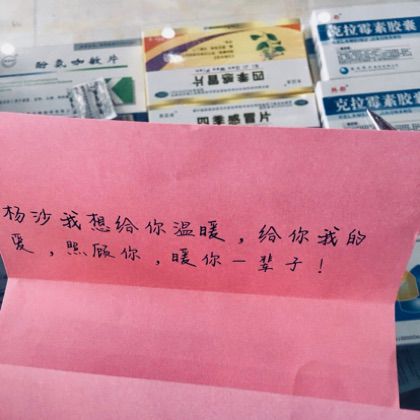 酚氨咖敏片
四季感冒片
克拉霉素胶囊
四季感冒片
克拉霉素胶囊
杨沙我想给你温暖，给你我的
爱，照顾你，暖你一辈子！